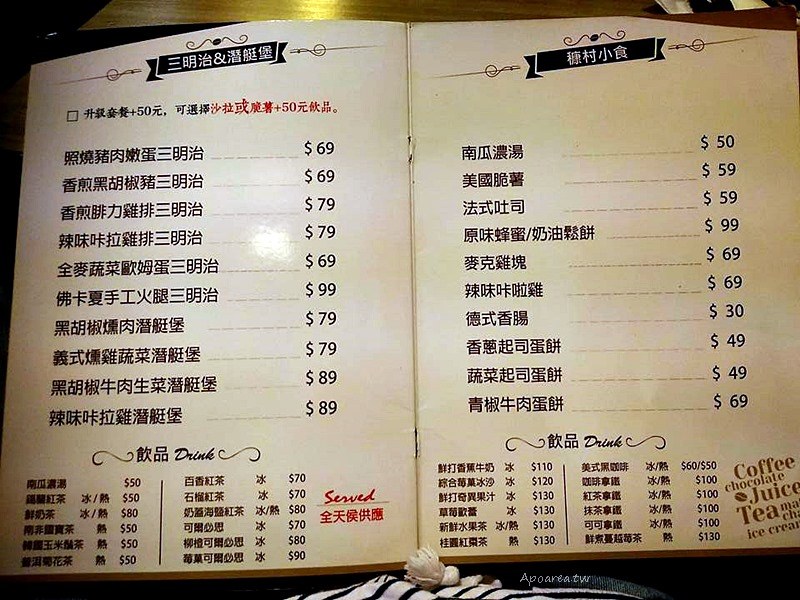 三明治&潛艇堡
升級套餐+50元，可選擇沙拉或脆薯+50元飲品。
照燒豬肉嫩蛋三明治 $69
香煎黑胡椒豬三明治 $69
香煎腓力雞排三明治 $79
辣味咔拉雞排三明治 $79
全麥蔬菜歐姆蛋三明治 $69
佛卡夏手工火腿三明治 $99
黑胡椒燻肉潛艇堡 $79
義式燻雞蔬菜潛艇堡 $79
黑胡椒牛肉生菜潛艇堡 $89
辣味咔拉雞潛艇堡 $89
飲品 Drink
南瓜濃湯 $50
錫蘭紅茶 冰/熱 $50
鮮奶茶 冰/熱 $80
南非國寶茶 熱 $50
韓國玉米鬚茶 熱 $50
普洱菊花茶 熱 $50
百香紅茶 冰 $70
石榴紅茶 冰 $70
奶蓋海鹽紅茶 冰/熱 $80
可爾必思 冰 $70
柳橙可爾必思 冰 $80
莓菓可爾必思 冰 $90
Served
全天侯供應
糠村小食
南瓜濃湯 $50
美國脆薯 $59
法式吐司 $59
原味蜂蜜/奶油鬆餅 $99
麥克雞塊 $69
辣味咔啦雞 $69
德式香腸 $30
香蔥起司蛋餅 $49
蔬菜起司蛋餅 $49
青椒牛肉蛋餅 $69
飲品 Drink
鮮打香蕉牛奶 冰 $110
綜合莓菓冰沙 冰 $120
鮮打奇異果汁 冰 $130
草莓歐蕾 冰 $130
新鮮水果茶 冰/熱 $130
桂圓紅棗茶 熱 $130
美式黑咖啡 冰/熱 $60/$50
咖啡拿鐵 冰/熱 $100
紅茶拿鐵 冰/熱 $100
抹茶拿鐵 冰/熱 $100
可可拿鐵 冰/熱 $100
鮮煮蔓越莓茶 熱 $130
Coffee
chocolate
Juice
Tea
ice cream
Apoarea.tw